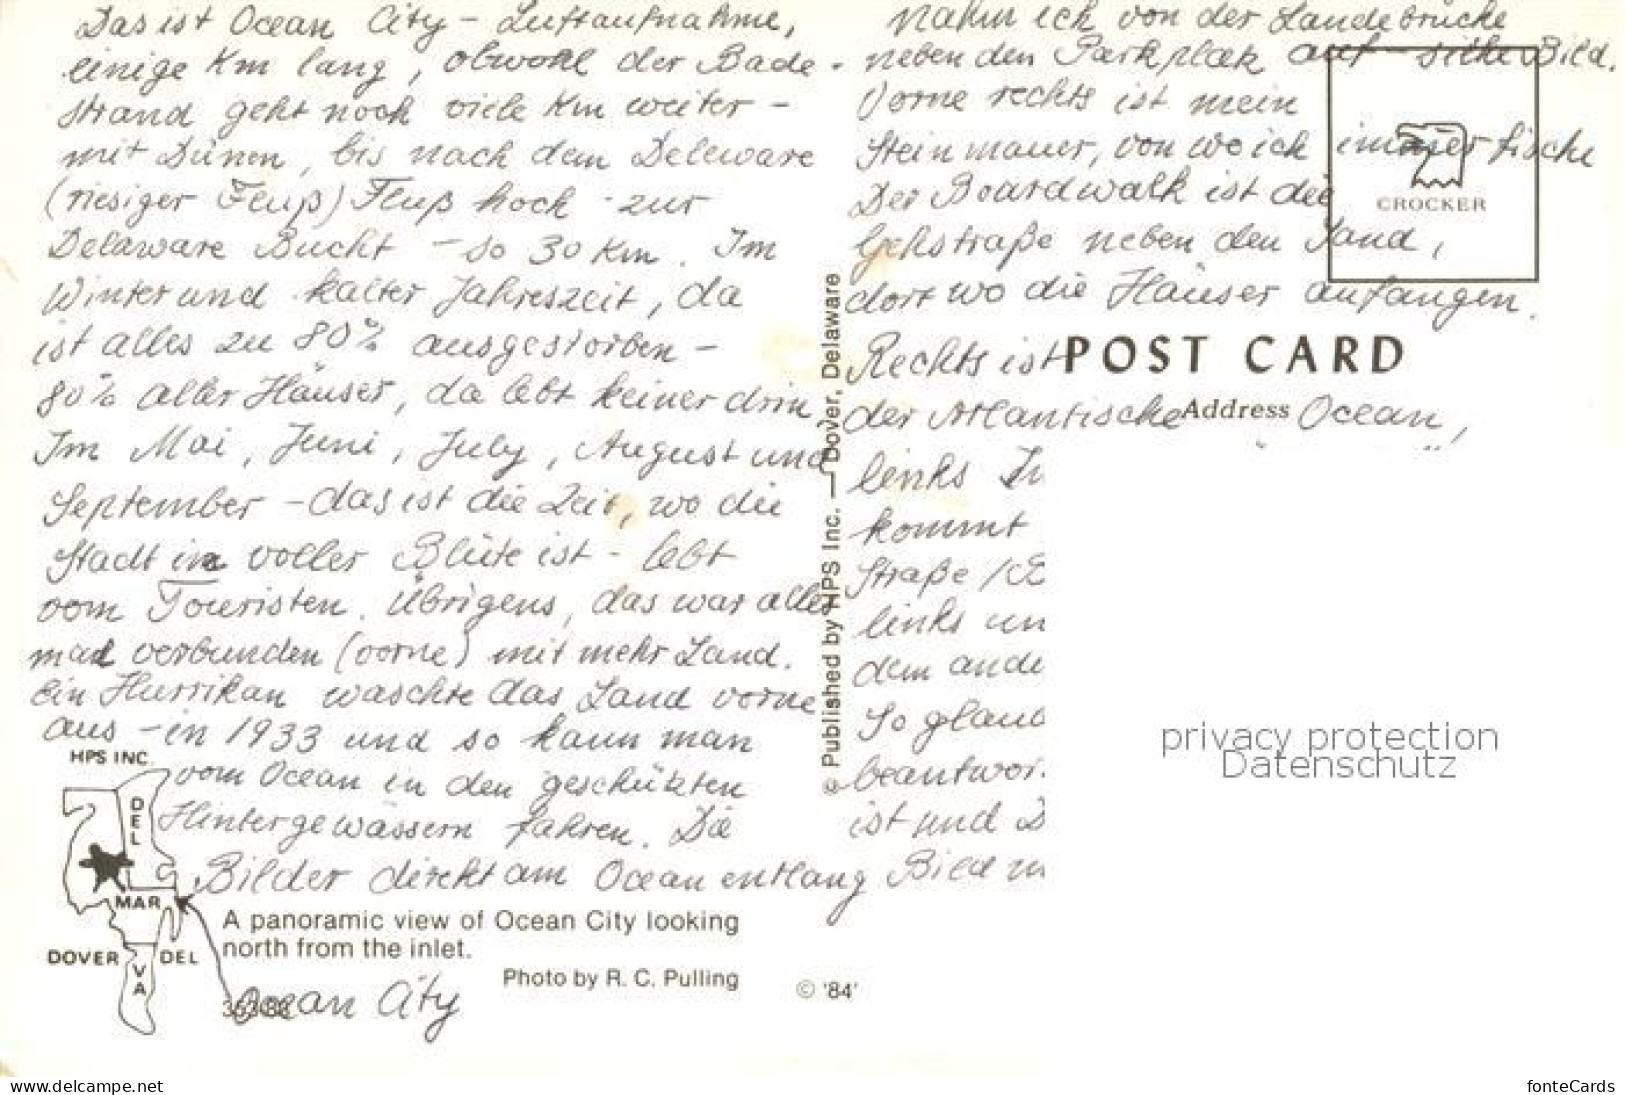 Das ist Ocean City – Luftaufnahme,
einige Km lang, obwohl der Bade-
strand geht noch viele Km weiter –
mit Dünen, bis nach dem Deleware
(riesiger Fluß) Fluß hoch zur
Delaware Bucht – so 30 Km. Im
Winter und kalter Jahreszeit, da
ist alles zu 80% ausgestorben –
80% aller Häuser, da lebt keiner drin.
Im Mai, Juni, July, August und
September – das ist die Zeit, wo die
Stadt in voller Blüte ist – lebt
vom Touristen. Übrigens, das war alles
mal verbunden (vorne) mit mehr Land.
Ein Hurrikan waschte das Land vorne
aus – in 1933 und so kann man
vom Ocean in den geschützten
Hintergewässern fahren. Die
Bilder direkt am Ocean entlang
nahm ich von der Landebrücke
neben den Parkplatz auf – siehe Bild.
Vorne rechts ist mein
Steinmauer, von wo ich immer fische
Der Boardwalk ist die
Gehstraße neben den Sand,
dort wo die Häuser anfangen.
Rechts ist
der Atlantische Ocean,
links
kommt
Straße /
links un
dem ande
So glaub
beantwor
ist und D
Bild
CROCKER
POST CARD
Address
© Published by HPS Inc. — Dover, Delaware
HPS INC.
DEL
MAR
VA
DOVER DEL
A panoramic view of Ocean City looking
north from the inlet.
Photo by R. C. Pulling
© '84'
Ocean City
privacy protection
Datenschutz
www.delcampe.net
fonteCards